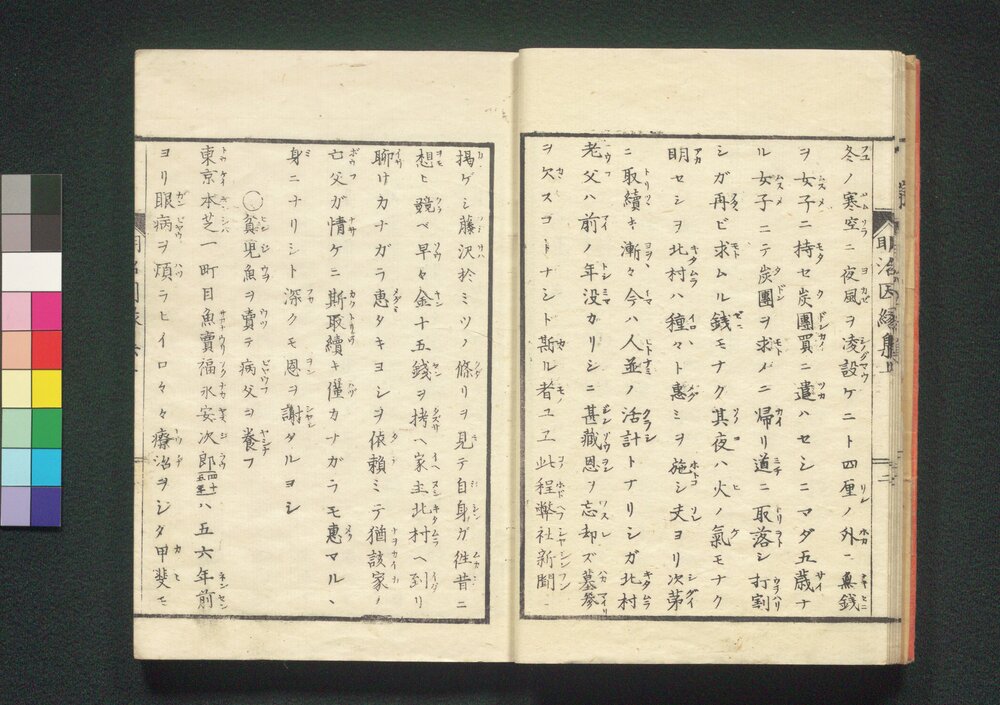 冬ノ寒空ニ夜風ヲ凌設ケニト四厘ノ外ニ無錢
ヲ女子ニ持セ炭團買ニ遣ハセシニマダ五歳ナ
ル女子ニテ炭團ヲ求メニ帰リ道ニ取落シ打割
シガ再ビ求ムル錢モナク其夜ハ火ノ氣モナク
明セシヲ北村ハ種々ト惠ミヲ施シ夫ヨリ次第
ニ取續キ漸々今ハ人並ノ活計トナリシガ北村
老父ハ前ノ年没カリシニ甚藏恩ヲ忘却ズ墓參
ヲ欠スコトナシト斯ル者ユエ此程弊社新聞ニ
掲ゲシ藤沢於ミツノ條リヲ見テ自身ガ徃昔ニ
想ヒ競ベ早々金十五錢ヲ拷ヘ家主北村ヘ到リ
聊ケカナガラ惠タキヨシヲ依頼ミテ猶該家ノ
亡父ガ情ケニ斯取續キ僅カナガラモ惠マルヽ
身ニナリシト深クモ恩ヲ謝タルヨシ
○貧児魚ヲ賣テ病父ヲ養フ
東京本芝一町目魚賣福永安次郎四十五年ハ五六年前
ヨリ眼病ヲ煩ラヒイロ々々療治ヲシタ甲斐モ